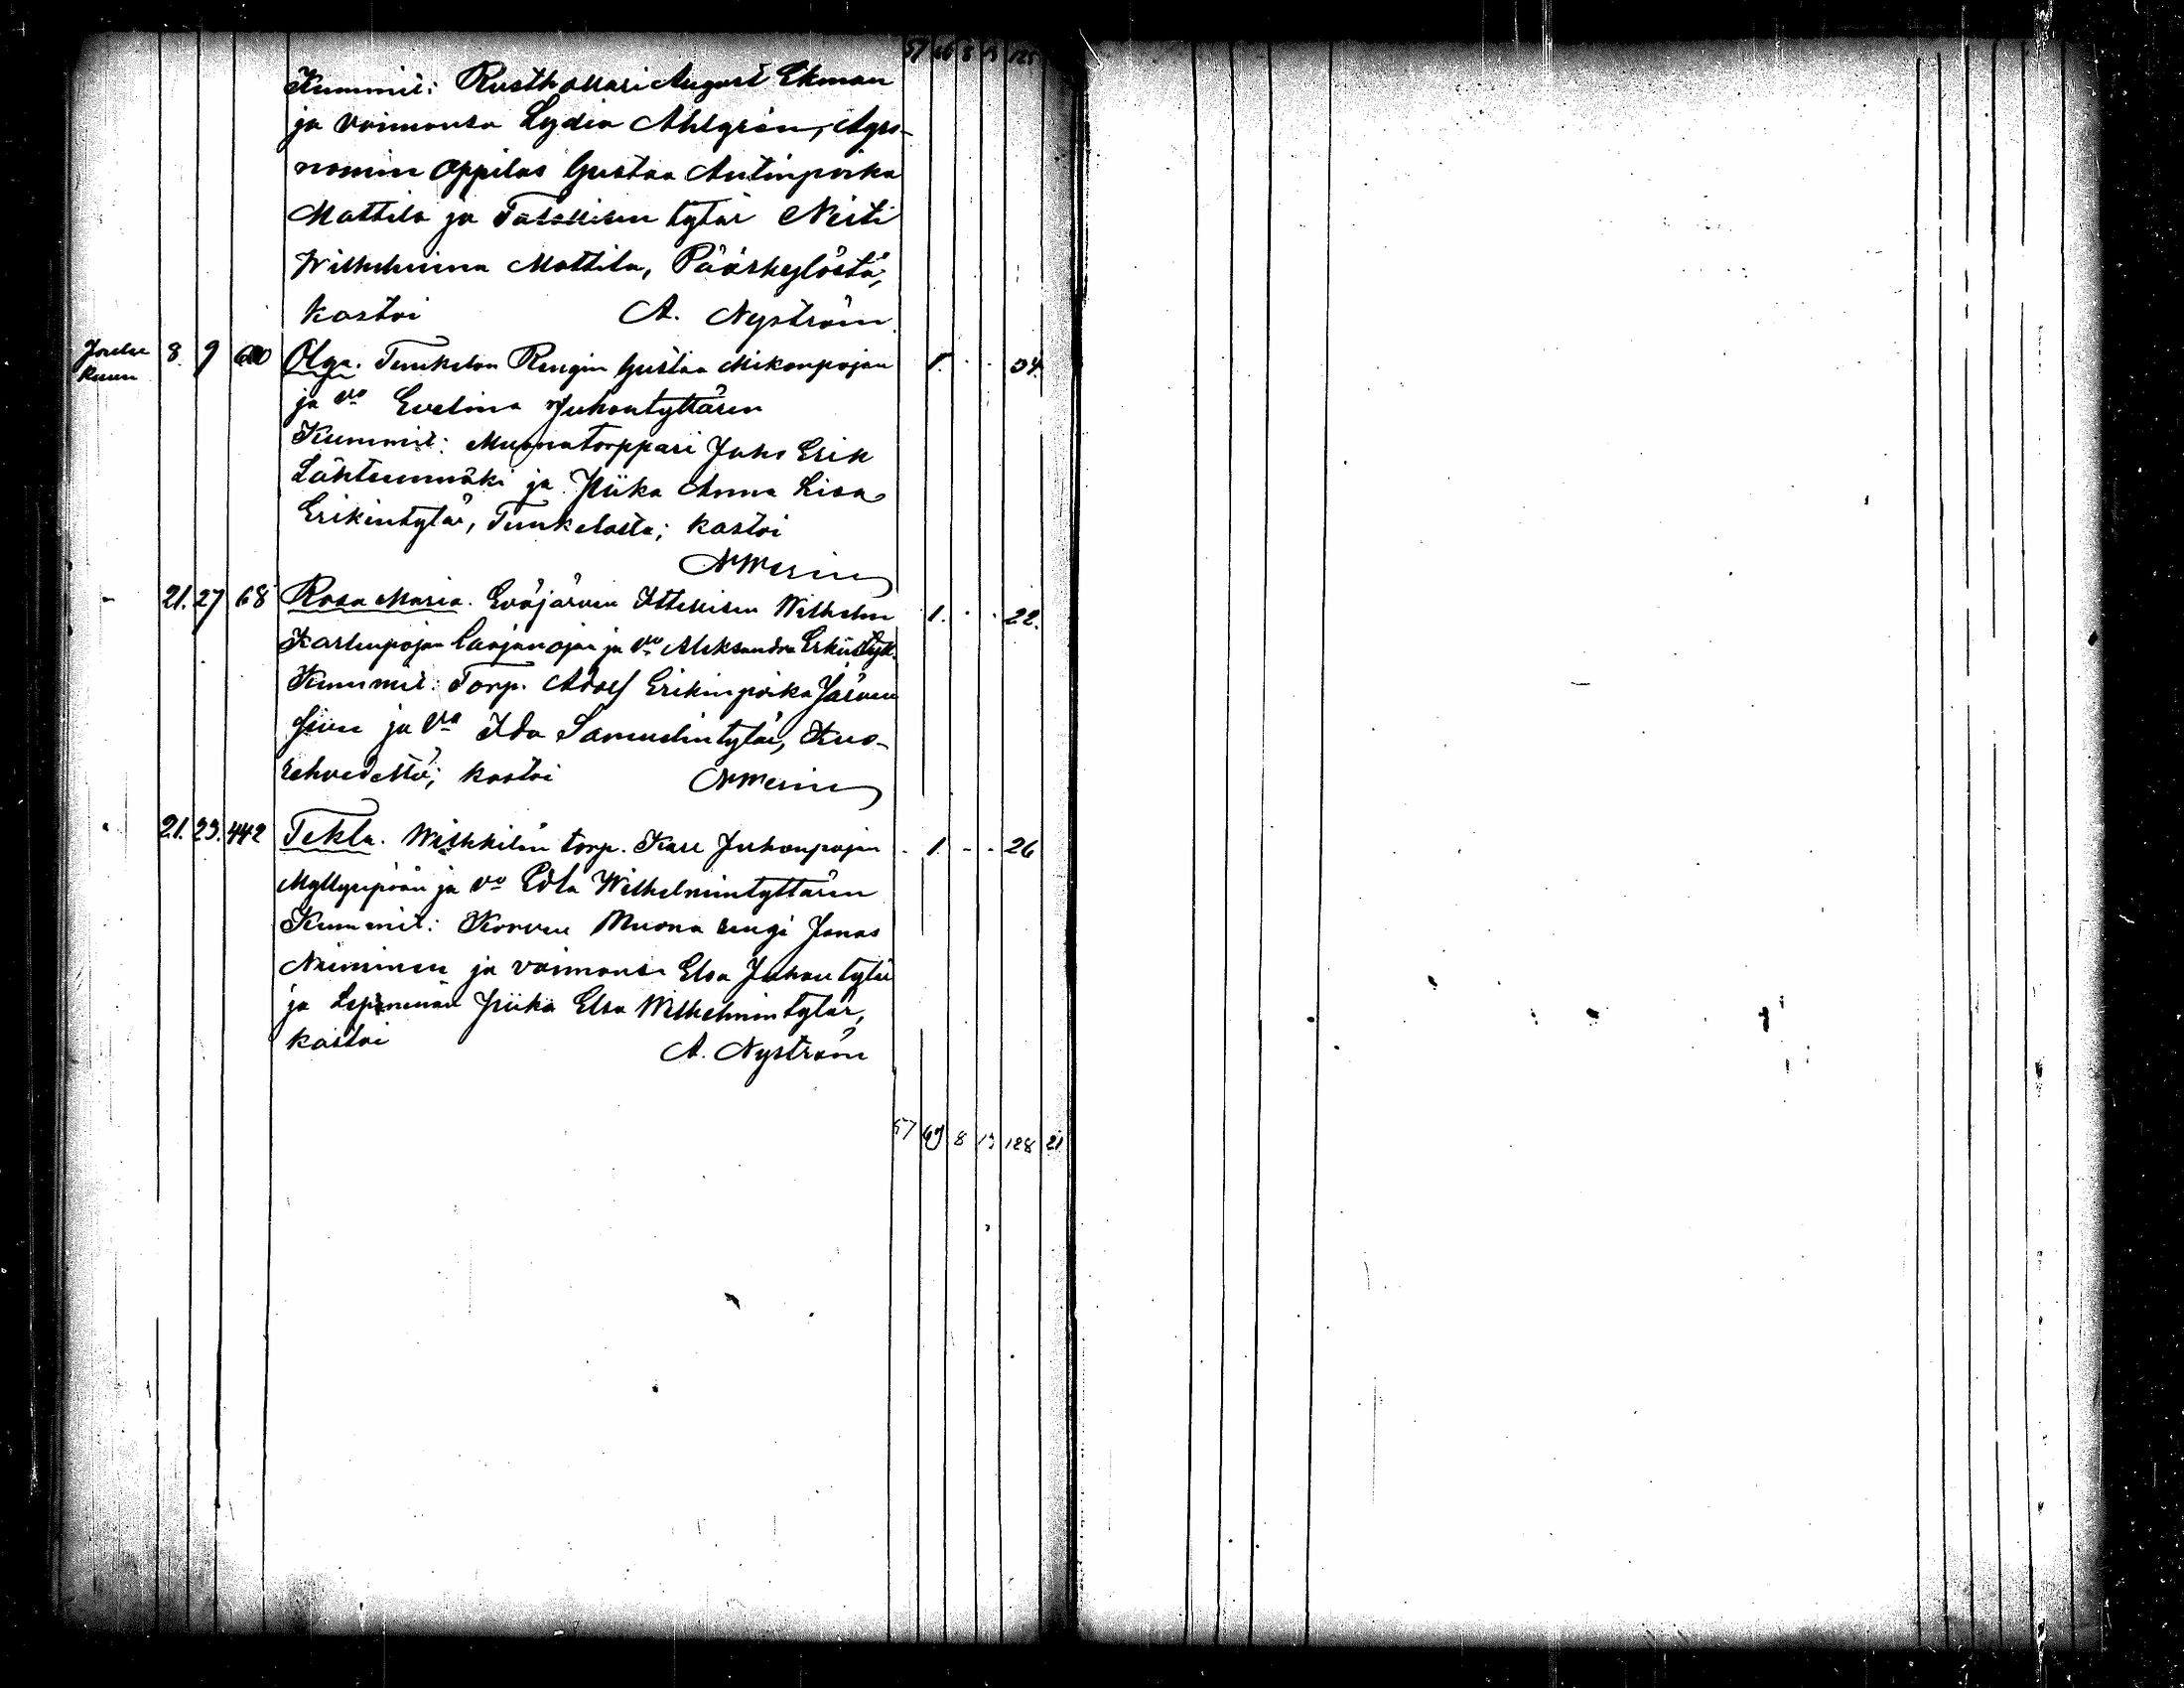 57 66 8 13 125
Kummit: Rusthollari August Ekman
ja vaimonsa Lydia Ahlgrén, Agro-
nomin oppilas Gustaa Antinpoika
Mattila ja Talollisen tytär Neiti
Wilhelmina Mattila, Pääskylästä,
kastoi A. Nyström
Joulu 8. 9 Olga. Tunkelon Rengin Gustaa Mikonpojan 1. 34.
kuun
ja vo Evelina Juhontyttären
Kummit: Muonatorppari Juho Erik
Lähteenmäki ja Piika Anna Liisa
Erikintytär, Tunkelosta; kastoi
21. 27 68 Rosa Maria. Eväjärven Itsellisen Wilhelm 1. 22.
Karlenpojan ja vo Aleksandra
Kummit: Torp. Adolf Erikinpoika Järven
ja va Ida Samuelintytär, Kuo-
rehvedeltä; kastoi
21. 23. 442 Tekla. torp. Kalle Juhonpojan 1. 26
Myllynpään ja vo Edla Wilhelmintyttären
Kummit: Korven Muona rengi Jonas
Nieminen ja vaimonsa Elsa Juhontytär
ja Piika Elsa Wilhelmintytär,
kastoi A. Nyström
57 69 8 13 128 21